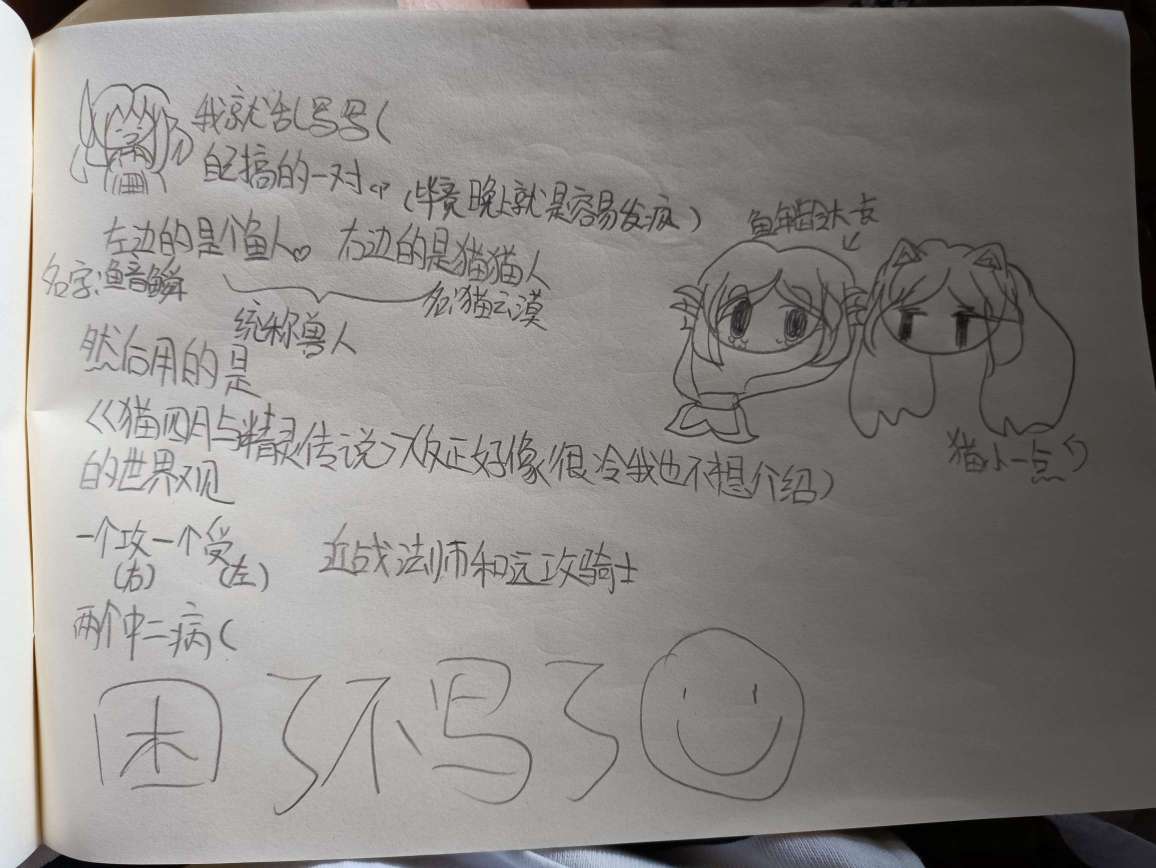 我就乱写写(
自己搞的一对
(毕竟晚上就是容易发疯)
鱼年龄大
左边的是个鱼人 右边的是猫猫人
名字:鱼音鳞
名:猫云漠
统称兽人
然后用的是
《猫四月与精灵传说》(反正好像很冷我也不想介绍)
的世界观
猫小一点
一个攻一个受
(右) (左)
近战法师和远攻骑士
两个中二病(
困了不写了